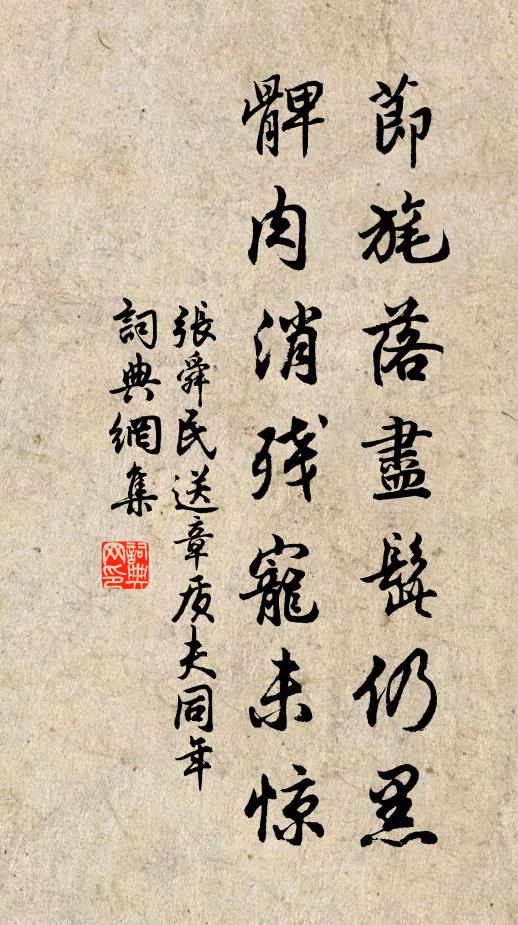 節旄落盡髭仍黑
髀肉消残寵未惊
張舜民送章质夫同年
詞典網集
詞典网印